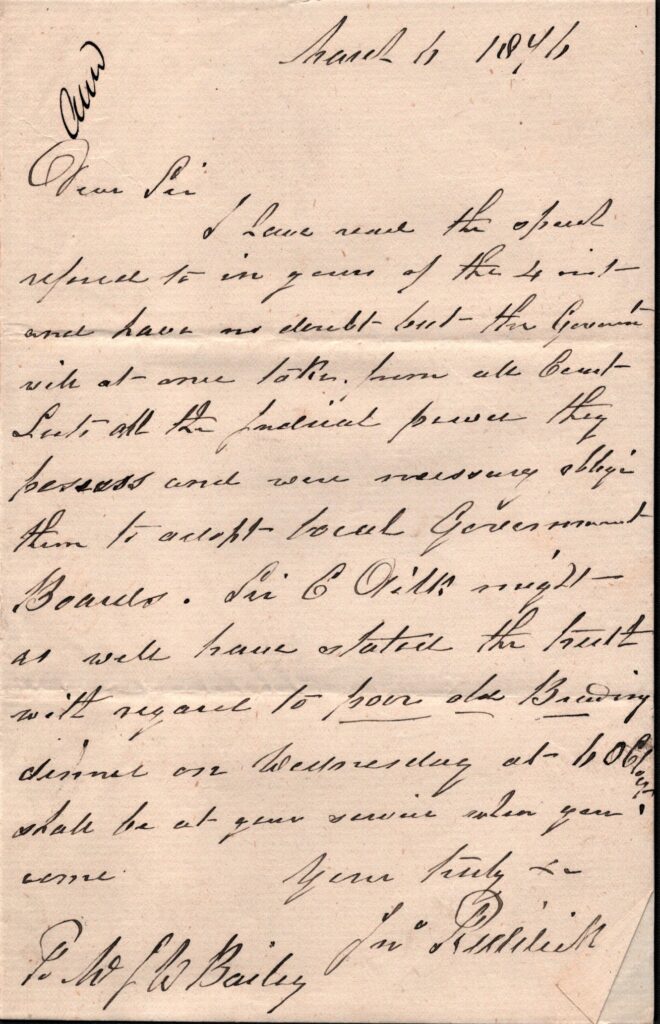 March 6 1876
Dear Sir
I have read the speech
refered to in yours of the 4 inst
and have no doubt but the Governt
will at once take from all Court
Leets all the Judicial power they
possess and were necessary oblige
them to adopt Local Government
Boards. Sir C Dilke might
as well have stated the truth
with regard to poor old Brading
dinner on Wednesday at 6 OClock
shall be at your service when you
come
Yours truly
Jno
To Mr J W Bailey